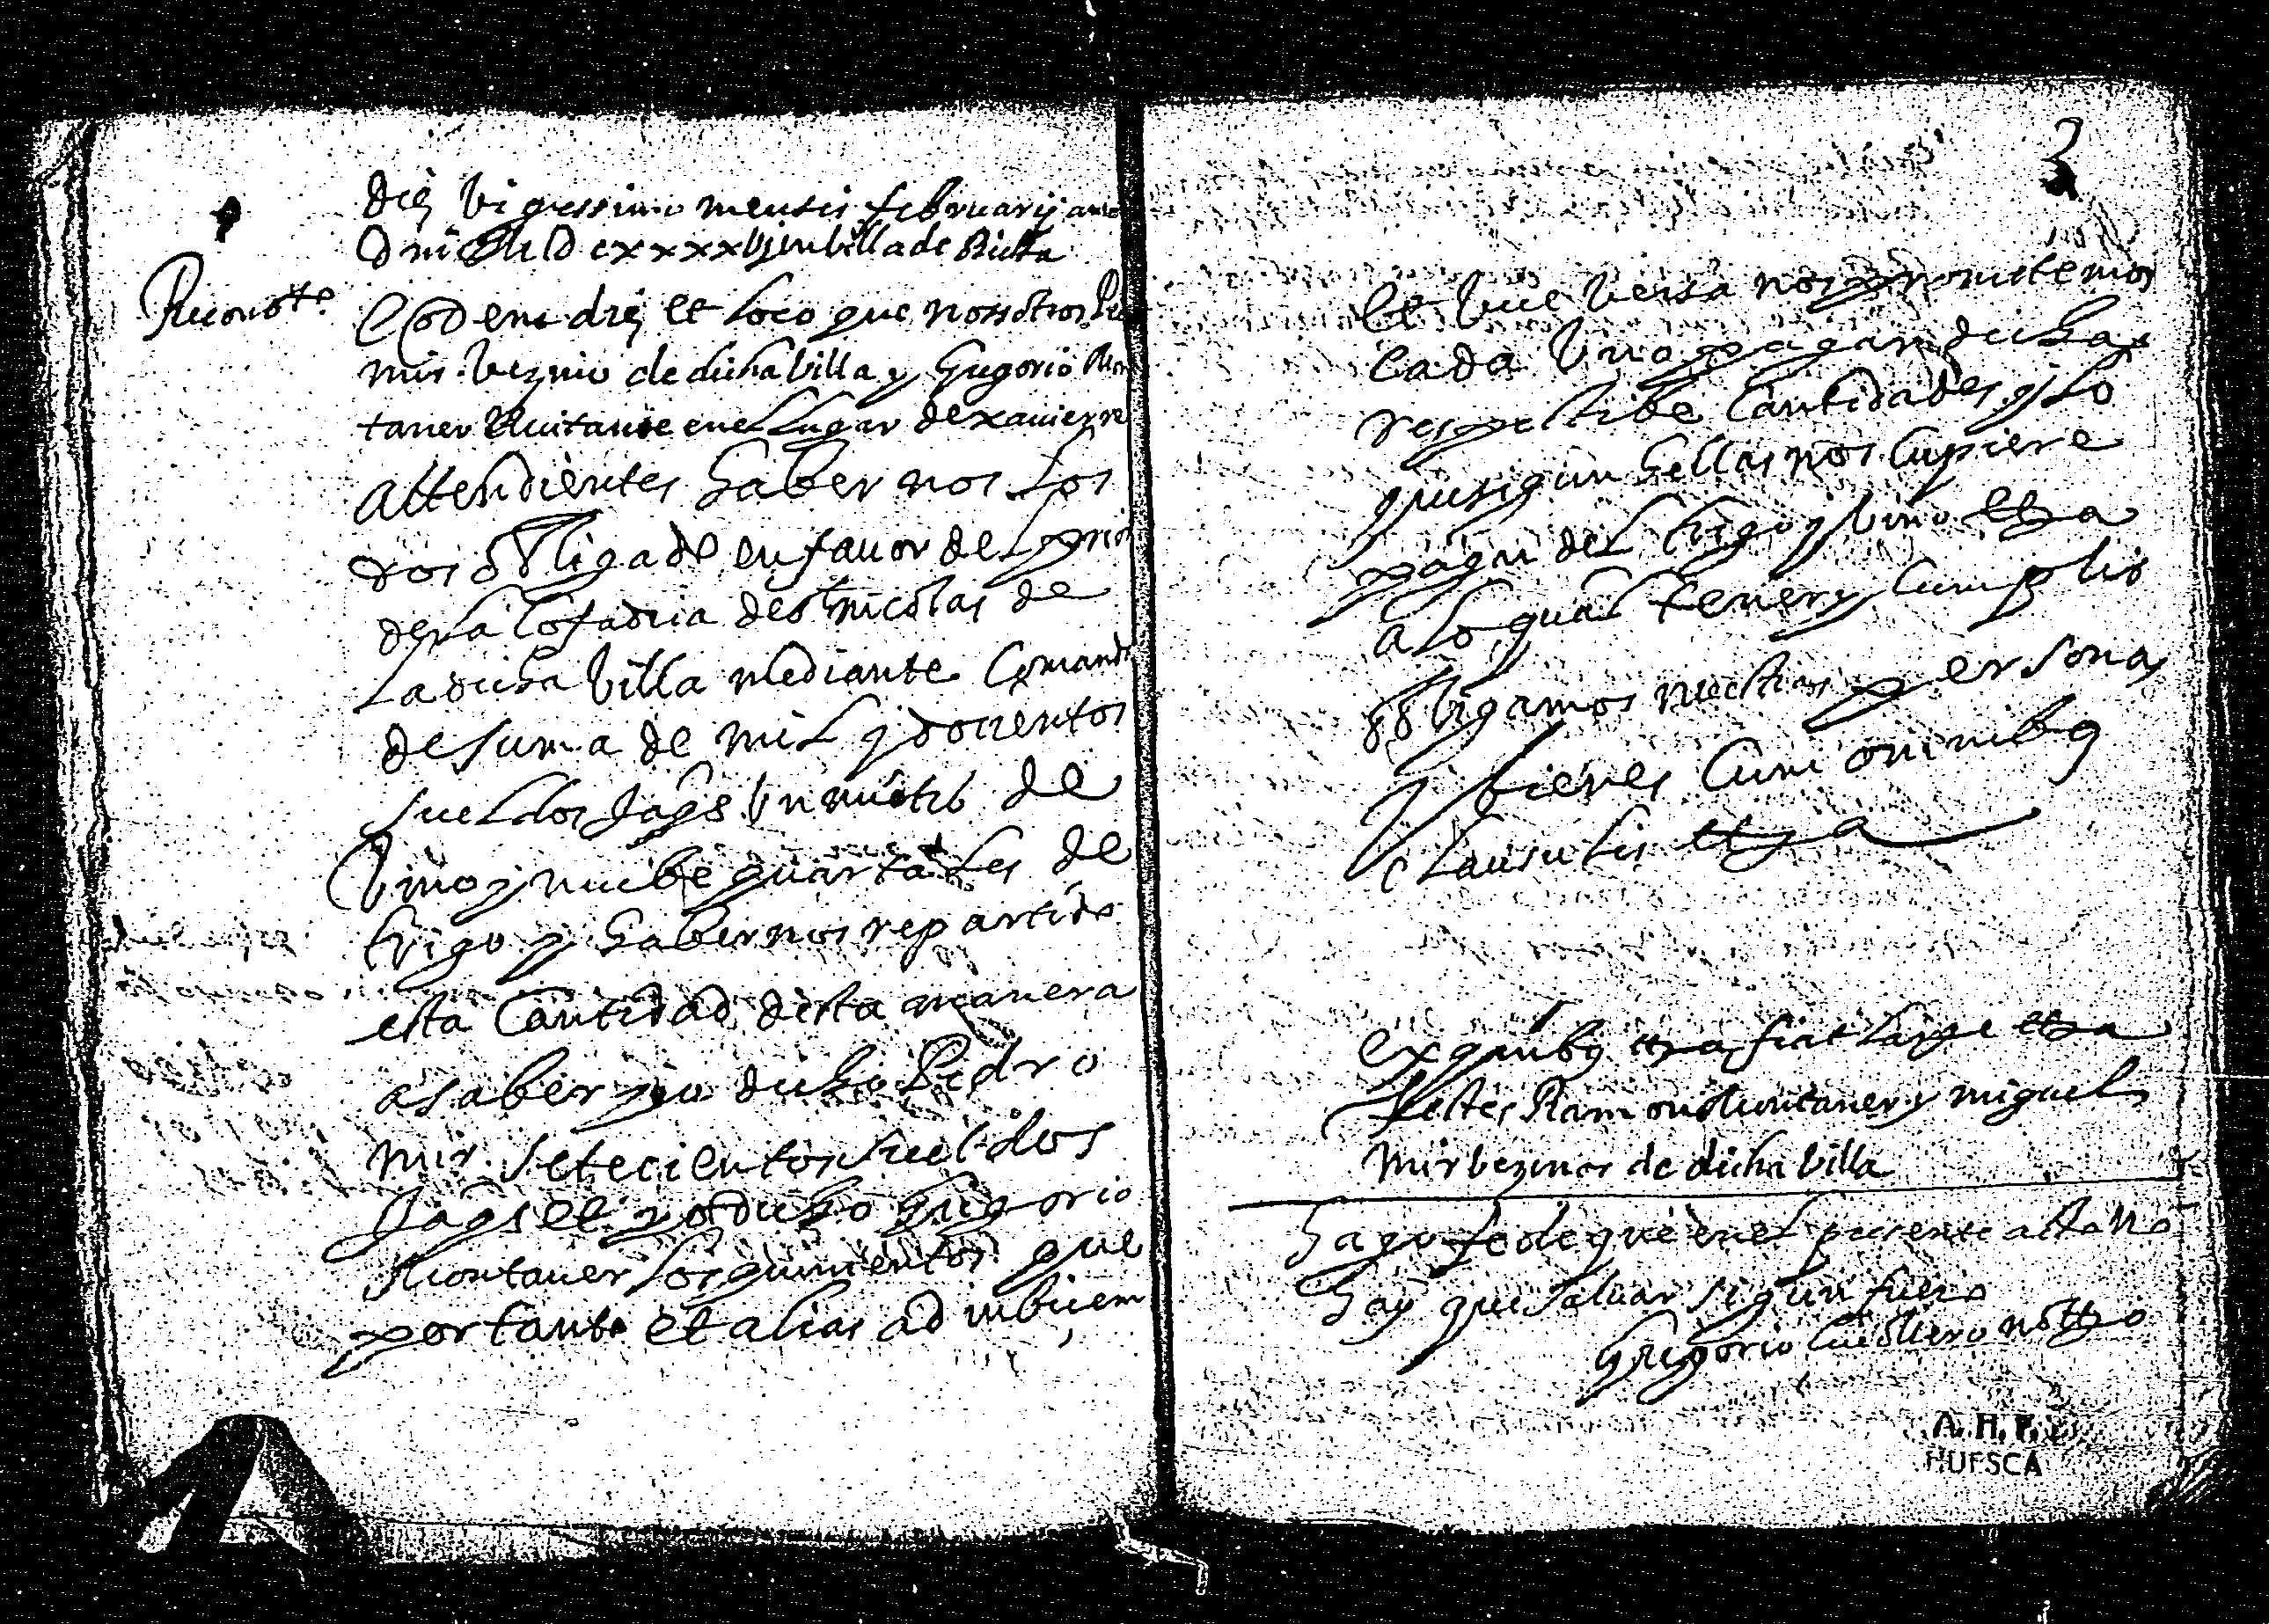 3
die Vigessimo mensis februarij anno
Dni M D c xxxxvj en Villa de Biesca
Reconosto.
Eodem die et loco que nosotros
mir. bezino de dicha billa y Grigorio Mon
taner Auitante en el Lugar de xauierre
attendientes haber nos los
dos obligado en fauor del prior
de la Cofadria de St nicolas de
la dicha billa mediante Comanda
de suma de mil y docientos
sueldos Jaqs un nietro de
bino y nuebe quartales de
trigo y habernos repartido
esta Cantidad desta manera
a saber yo dicho Pedro
mir. setecientos sueldos
Jaqs et yo dicho Grigorio
Montaner los quinientos que
por tanto et alias ad inbicem
et bice bersa nos prometemos
Cada uno pagar dichas
respectibe Cantidades y lo
que sigun hellas nos Cupiere
pagar del trigo y bino etta
a lo qual tener y Cumplir
obligamos nuestras personas
y bienes Cum omnibq
clausulis etta
ex quibq etta fiat large etta
testes Ramon Montaner y miguel
Mir bezinos de dicha billa
hago fe de que en el presente acto no
hay que saluar sigun fuero
Grigorio notto
A. H. P.
HUESCA